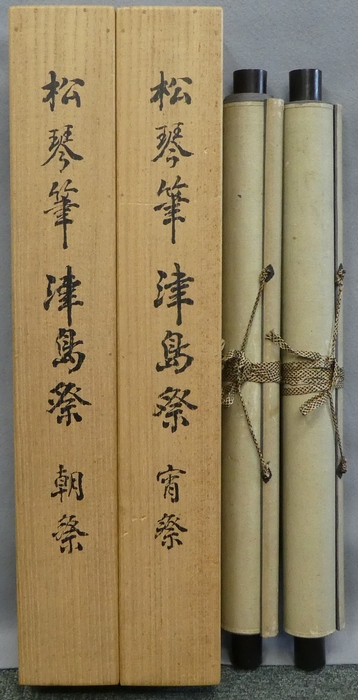 松琴筆 津島祭 宵祭
松琴筆 津島祭 朝祭